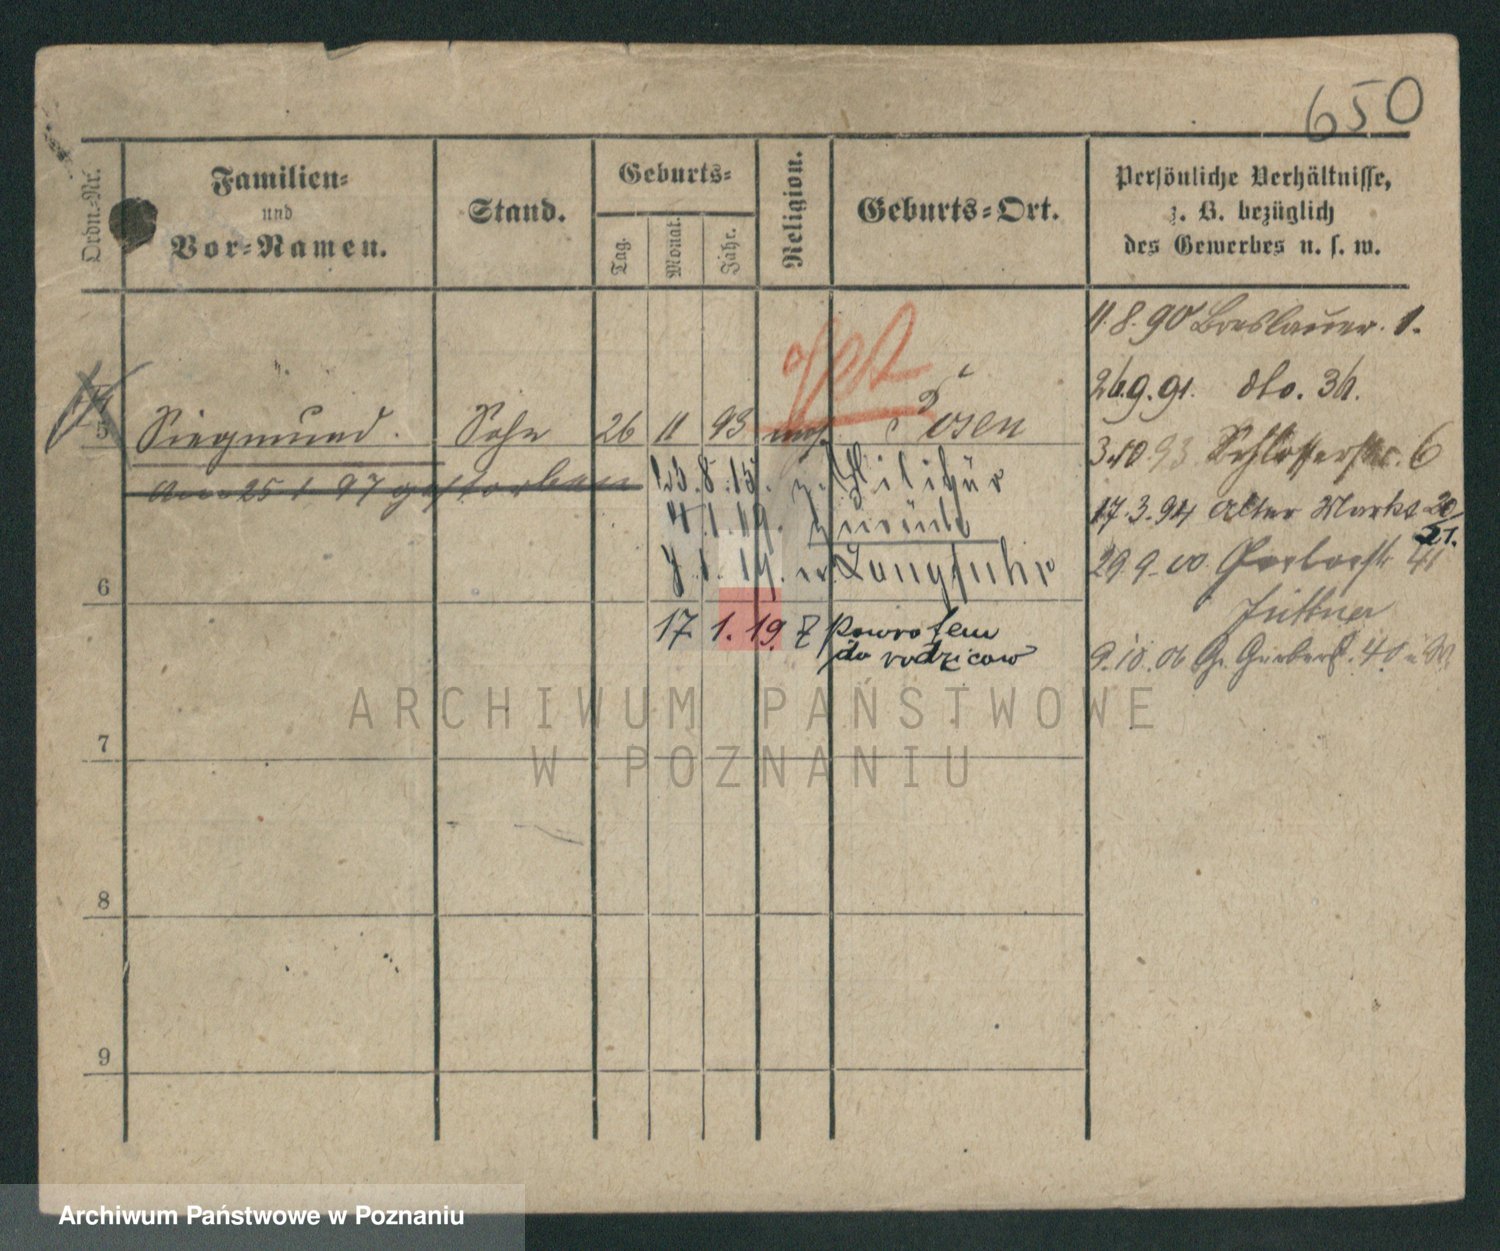 650
Ordn.-Nr.
Familien-
und
Vor-Namen.
Stand.
Geburts-
Tag.
Monat.
Jahr.
Religion.
Geburts-Ort.
Persönliche Verhältnisse,
z. B. bezüglich
des Gewerbes u. s. w.
11.8.90 Breslauer. 1.
gest
26.9.91. dto. 36.
5 Siegmund. Sohn 26 11 93 mos. Posen
3.10.93 Schlosserstr. 6
Am 25 1 97 gestorben
13.8.15. z. Militär
17.3.94 Alter Markt 20/21.
4.1.19. zurück
7.1.19. n. Langfuhr
29.9.00. Gerberstr. 41
6
Juttner
17 1.19. z powrotem
do rodziców
9.10.06 Gr. Gerberst. 40
ARCHIWUM PAŃSTWOWE
W POZNANIU
7
8
9
Archiwum Państwowe w Poznaniu